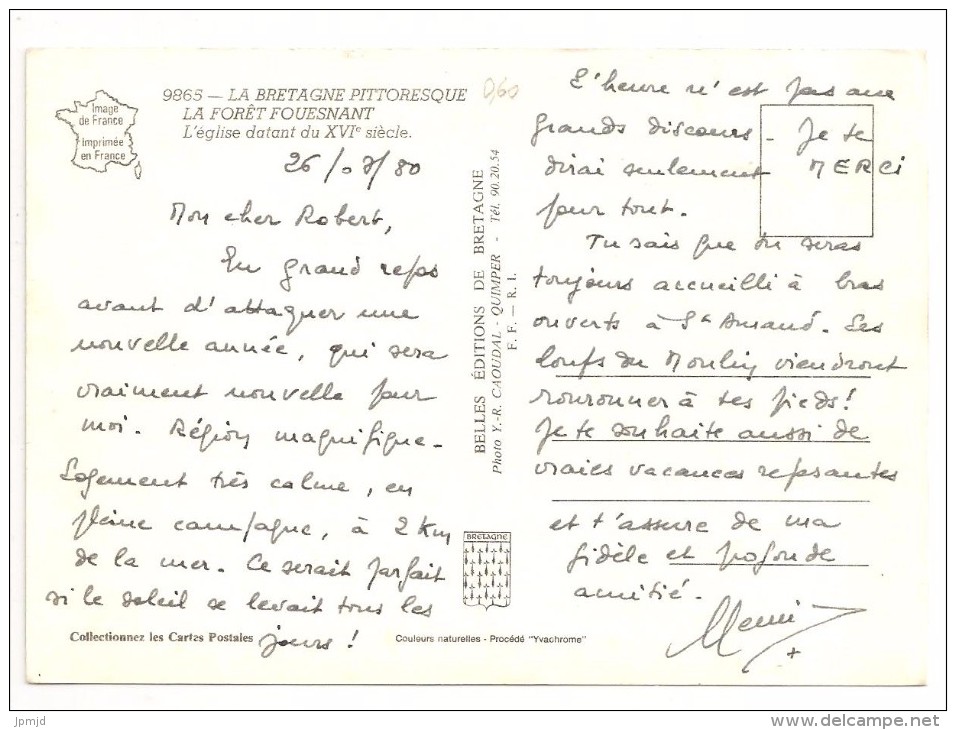 Image
de France
Imprimée
en France
9865 — LA BRETAGNE PITTORESQUE
LA FORÊT FOUESNANT
L'église datant du XVIe siècle.
0,60
26/07/80
Mon cher Robert,
En grand repos
avant d'attaquer une
nouvelle année, qui sera
vraiment nouvelle pour
moi. Région magnifique.
Logement très calme, en
pleine campagne, à 2 km
de la mer. Ce serait parfait
si le soleil se levait tous les
jours !
Collectionnez les Cartes Postales
BELLES ÉDITIONS DE BRETAGNE
Photo Y.-R. CAOUDAL - QUIMPER - Tél. 90.20.54
F. F. — R. I.
BRETAGNE
Couleurs naturelles - Procédé "Yvachrome"
L'heure n'est pas aux
grands discours. Je te
dirai seulement MERCI
pour tout.
Tu sais que tu seras
toujours accueilli à bras
ouverts à St Amand. Les
loufs du Moulin viendront
ronronner à tes pieds !
Je te souhaite aussi de
vraies vacances reposantes
et t'assure de ma
fidèle et profonde
amitié.
jpmjd
www.delcampe.net